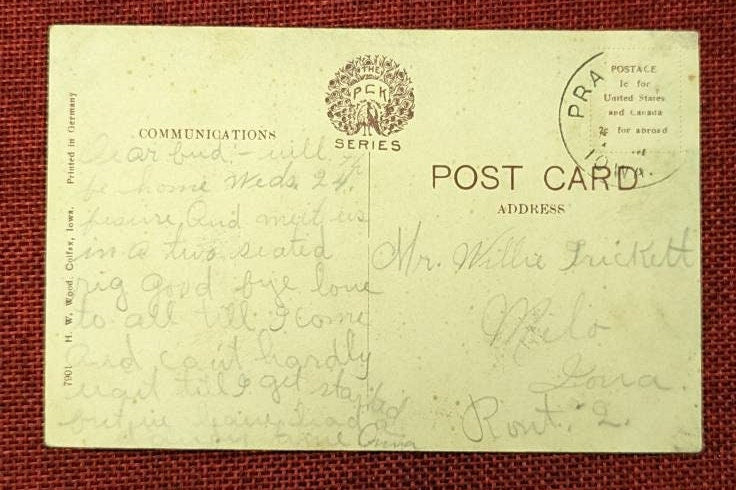 7901 H. W. Wood, Colfax, Iowa. Printed in Germany
COMMUNICATIONS
Dear bud:- will
be home Weds. 24th.
And meet us
in a two seated
rig good bye love
to all till I come
And can't hardly
wait till I get started
but
Anna
THE
PCK
SERIES
POST CARD
ADDRESS
PRA
POSTAGE
1c for
United States
and Canada
2c for abroad
Mr. Willie Trickett
Milo
Iowa.
Rout. 2.